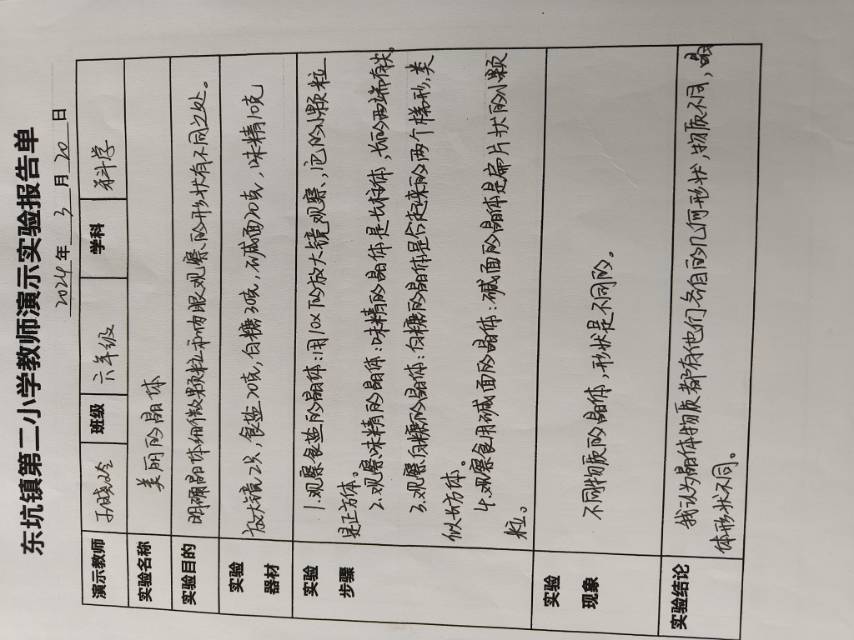 东坑镇第二小学教师演示实验报告单
2024年 3 月 20 日
演示教师 于晓玲 班级 六年级 学科 科学
实验名称 美丽的晶体
实验目的 明确晶体细微颗粒和肉眼观察的形状有不同之处。
实验器材 放大镜2只,食盐20克,白糖30克,碱面20克,味精10克
实验步骤 1.观察食盐的晶体:用10x的放大镜观察,它的小颗粒
是正方体。
2.观察味精的晶体:味精的晶体是长柱体,长的两端有尖。
3.观察白糖的晶体:白糖的晶体是合起来的两个梯形,类
似长方体。
4.观察食用碱面的晶体:碱面的晶体是扁片状的小颗
粒。
实验现象 不同物质的晶体,形状是不同的。
实验结论 我认为晶体物质都有他们各自的几何形状,物质不同,晶
体形状不同。